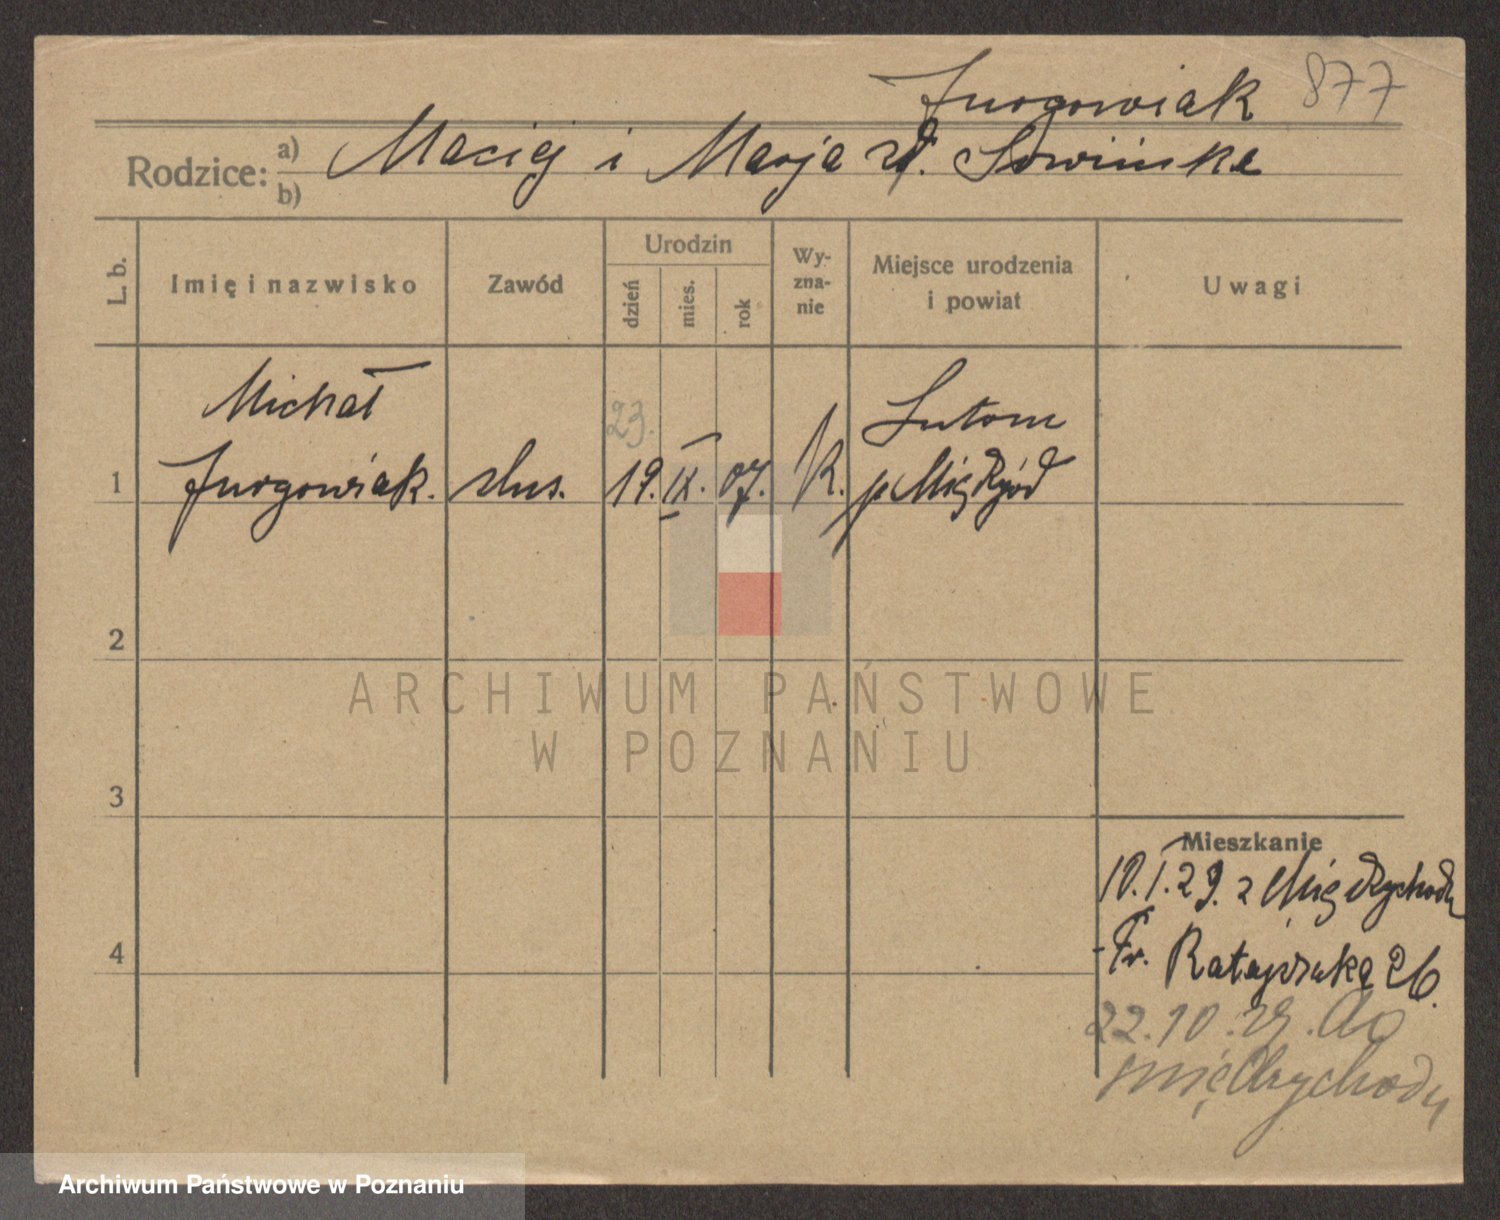 Jurgowiak 877
Rodzice: a) b) Maciej i Marja zd. Słowińska
L. b.
Imię i nazwisko
Zawód
Urodzin
dzień
mies.
rok
Wy-
zna-
nie
Miejsce urodzenia
i powiat
Uwagi
1
Michał
Jurgowiak.
ślus.
23.
19. IX. 07.
K.
Lutom
p Międzychód
2
3
4
Mieszkanie
10.I.29. z Międzychodu
Fr. Ratajczaka 26.
22.10.29. do
Międzychodu
ARCHIWUM PAŃSTWOWE
W POZNANIU
Archiwum Państwowe w Poznaniu